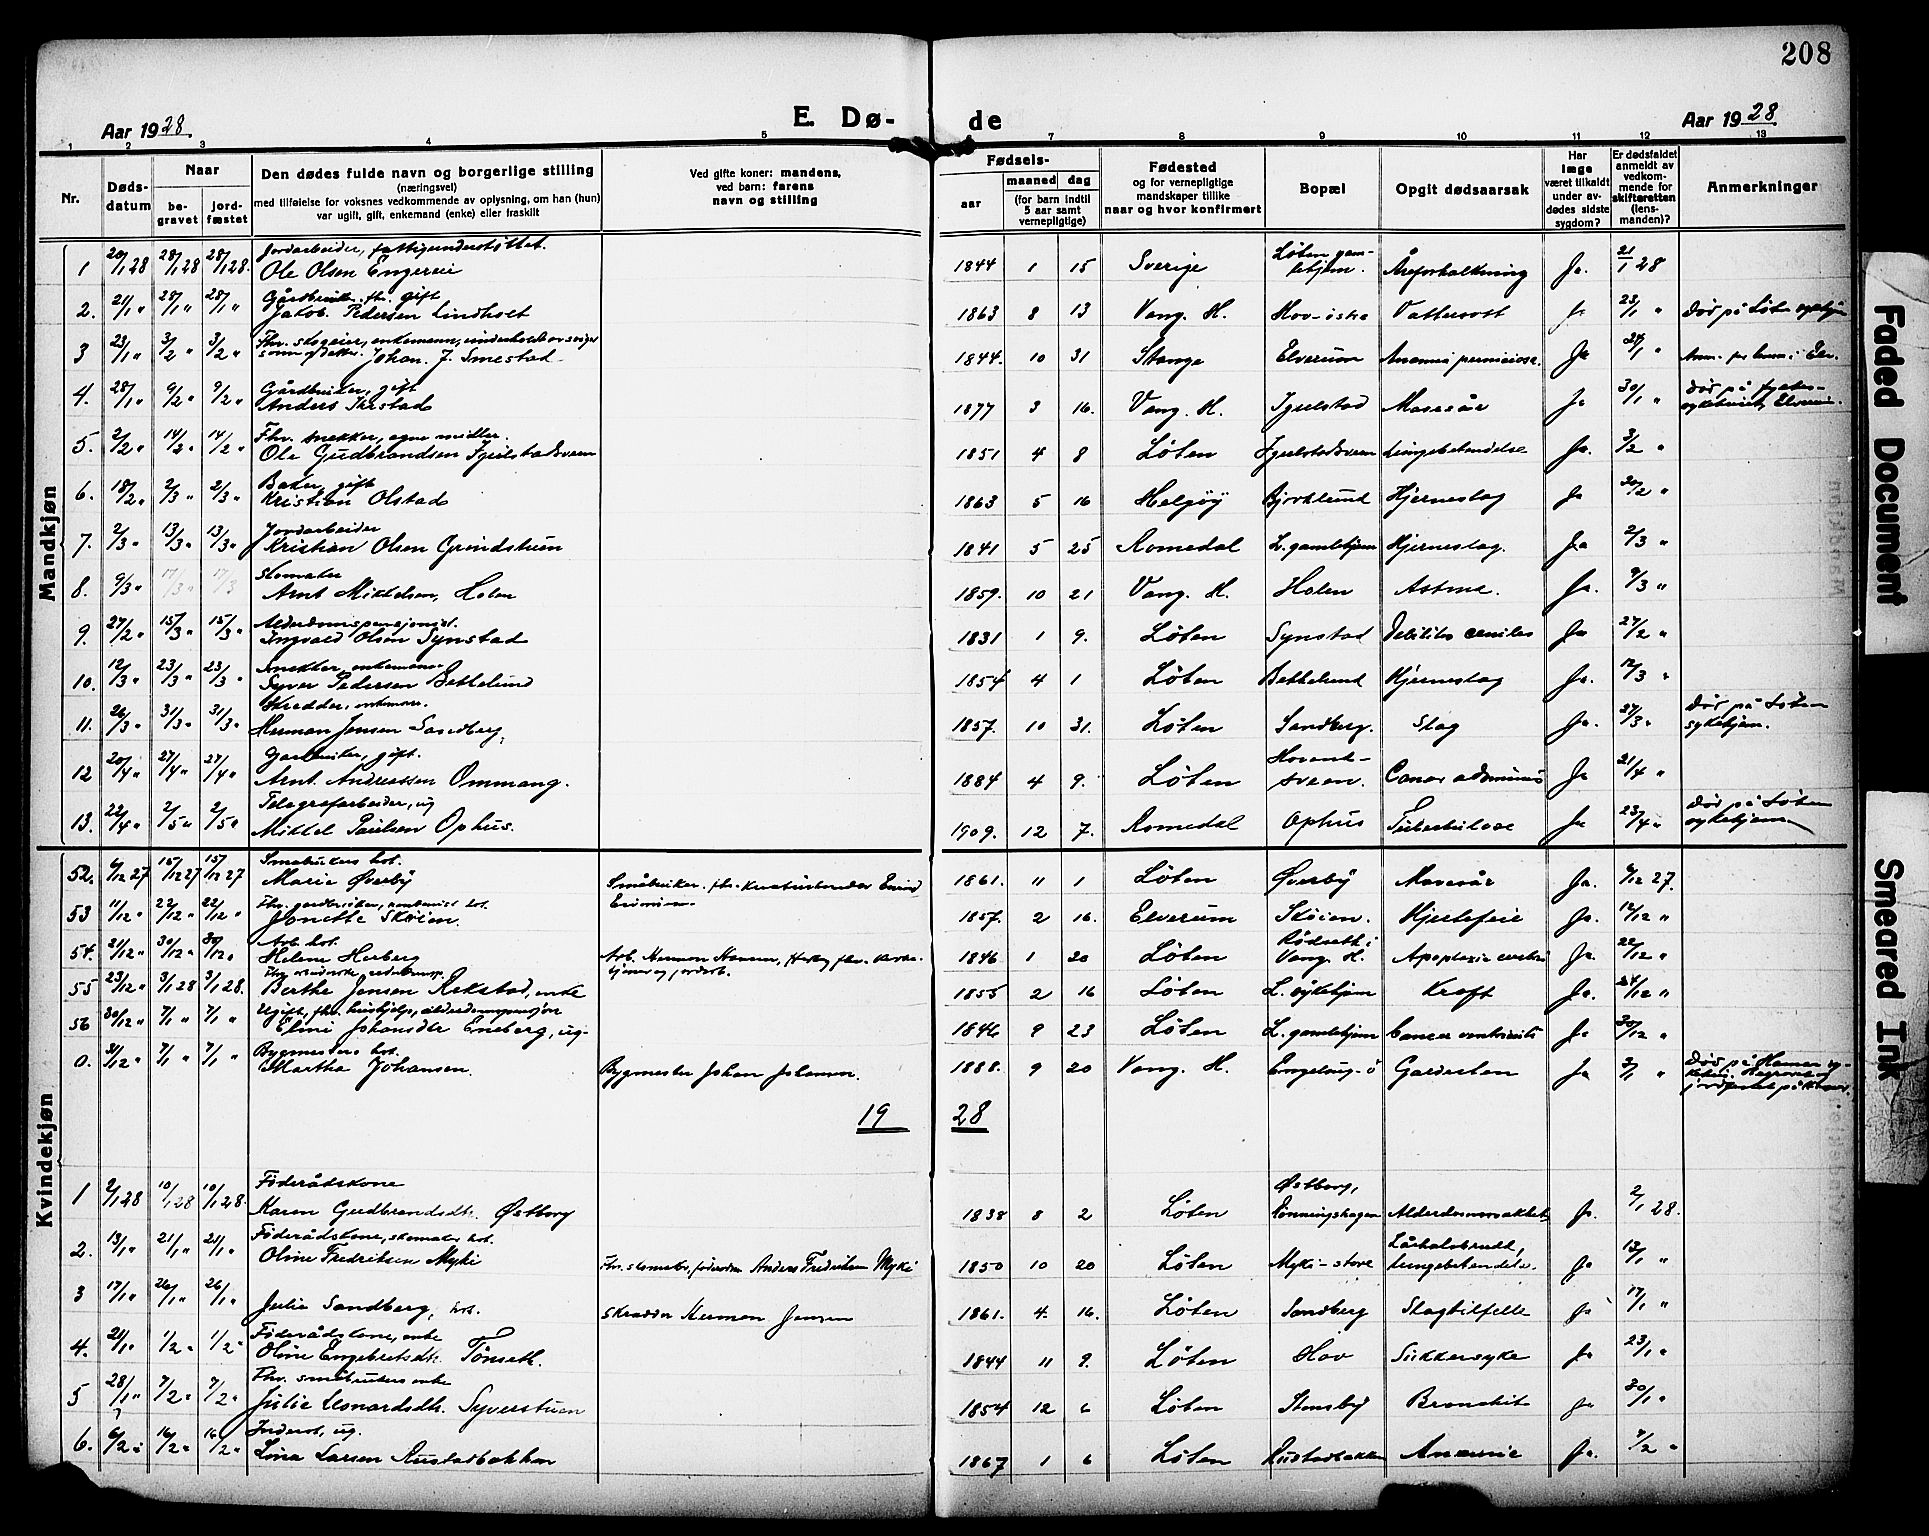 208
Aar 1928
E. Dø-
de
Aar 1928
1 2 3 4 5 7 8 9 10 11 12 13
Nr.
Døds-
datum
Naar
be-
gravet
jord-
fæstet
Den dødes fulde navn og borgerlige stilling
(næringsvei)
med tilføielse for voksnes vedkommende av oplysning, om han (hun)
var ugift, gift, enkemand (enke) eller fraskilt
Ved gifte koner: mandens,
ved barn: farens
navn og stilling
Fødsels-
aar
maaned
dag
(for barn indtil
5 aar samt
vernepligtige)
Fødested
og for vernepligtige
mandskaper tillike
naar og hvor konfirmert
Bopæl
Opgit dødsaarsak
Har
læge
været tilkaldt
under av-
dødes sidste
sygdom?
Er dødsfaldet
anmeldt av
vedkom-
mende for
skifteretten
(lens-
manden)?
Anmerkninger
Mandkjøn
Jordarbeider, fattigunderstøttet.
1 20/1 28 28/1 28 28/1 28. Ole Olsen Engereie 1844 1 15 Sverige Løten gam- lehjem. Åreforkalkning Ja. 21/1 28
Gårdbruker, gift
2. 21/1 " 28/1 " 28/1 " Jakob Pedersen Lindholt 1863 8 13 Vang. H. Hov-østre 23/1 " Død på Løten sykehjem
3 23/1 " 3/2 " 3/2 " Johan. J. Smestad 1844. 10 31 Stange Elverum Anæmia perniciosa. Ja 24/1 "
Gårdbruker, gift
4. 28/1 " 9/2 " 9/2 " Anders 1877 3 16. Vang. H. Igelstad Mavesår Ja 30/1 " Død på
sykehuset, Elverum.
Fhv. snekker, egne midler.
5. 2/2 " 14/2 " 14/2 " Ole Gudbrandsen Igelstadsveen 1851 4 8 Løten Igelstadsveen Lungebetendelse Ja. 3/2 "
Baker, gift
6. 18/2 " 2/3 " 2/3 " Kristian Olstad 1863 5 16 Helgøy Bjørklund Hjerneslag Ja 20/2 "
Jordarbeider
7. 2/3 " 13/3 " 13/3 " Kristian Olsen Grindstuen 1841 5 25 Romedal L. gamlehjem Hjerneslag. Ja 2/3 "
Skomaker
8. 9/3 " 17/3 " 17/3 Arnt Mikkelsen, Holen 1859. 10 21 Vang. H. Holen Astma. Ja. 9/3 "
Alderdomspensjonist.
9. 27/2 " 15/3 " 15/3 " Ingvald Olsen Synstad 1831 1 9. Løten Synstad Debilitas senilis Ja 27/2 "
Snekker, enkemann
10. 12/3 " 23/3 " 23/3 " Syver Pedersen Bekkelund 1854 4 1 Løten Bekkelund Hjerneslag Ja. 12/3 "
Skredder, enkemann.
11. 26/3 " 31/3 " 31/3 " Herman Jensen Sandberg, 1857. 10 31. Løten Sandberg. Slag Ja. 27/3 " Død på Løten
sykehjem.
Gardbruker, gift.
12 20/4 " 27/4 " 27/4 " Arnt Andreassen Ommang. 1884 4 9. Løten Ja 21/4 "
Telegrafarbeider, ug
13. 22/4 " 2/5 " 2/5 " Mikkel Paulsen Ophus. 1909. 12 7. Romedal Ophus Tuberkulose Ja 23/4 " Død på Løten
sykehjem
Småbrukers hst.
52. 6/12 27 15/12 27 15/12 27 Marie Øverby Småbruker 1861. 11 1 Løten Øverby Mavesår Ja. 6/12 27.
53 11/12 " 22/12 " 22/12 " Jonette Skøien. 1857. 2 16. Elverum Skøien. Hjertefeil Ja. 12/12 "
Arb. hst.
54. 21/12 " 30/12 " 30/12 " Helene Herberg Arb. Herman Hansen, 1846 1 20 Løten Rødseth i Vang. H. Apoplexia cerebri Ja. 22/12 "
55 23/12 " 3/1 28 3/1 28. Berthe Jensen Rekstad, enke 1855 2 16 Løten L. sykehjem Kreft Ja. 24/12 "
Ugift, fhv. hushjelp, alderdomspensjon
56 30/12 " 7/1 " 7/1 " Elini Johansdtr. Eneberg, ug. 1846 9 23 Løten L. gamlehjem Cancer ventriculi Ja 30/12 "
Bygmesters hst.
0. 31/12 " 7/1 " 7/1 " Martha Johansen. Bygmester Johan Johansen. 1888. 9 20 Vang. H. Engelaug-ø Galdesten Ja 3/1 " Død på Hamar sy-
19 28
Kvindekjøn
Føderådskone
1 2/1 28 10/1 28 10/1 28. Karen Gudbrandsdtr. Østborg 1838 8 2 Løten Østborg, Rønningshagen Alderdomssvakhet Ja. 2/1 28.
Føderådskone, skomaker hst.
2. 13/1 " 21/1 " 21/1 " Oline Fredriksen Myki Fhv. skomaker, føderådsm. Anders Fredriksen Myki 1850 10 20 Løten Myki-store Lårhalsbrudd, lungebetendelse. Ja 13/1 "
3 17/1 " 26/1 " 26/1 " Julie Sandberg, hst. Skredder Herman Jensen 1861. 4. 16. Løten Sandberg Slagtilfelle Ja 17/1 "
Føderådskone, enke
4. 21/1 " 1/2 " 1/2 " Oline Engebretsdtr. Tønseth. 1844 11 9. Løten Hov Sukkersyke Ja 23/1 "
Fhv. småbrukers enke
5 28/1 " 7/2 " 7/2 " Julie Leonardsdtr. Syverstuen 1854 12 6 Løten Stensby Bronchit Ja 30/1 "
Inderst, ug.
6. 6/2 " 16/2 " 16/2 " Lina Larsen Rustadbakken 1867 1 6 Løten Rustadbakken Anæmie Ja. 7/2 "
Faded Document
Smeared Ink